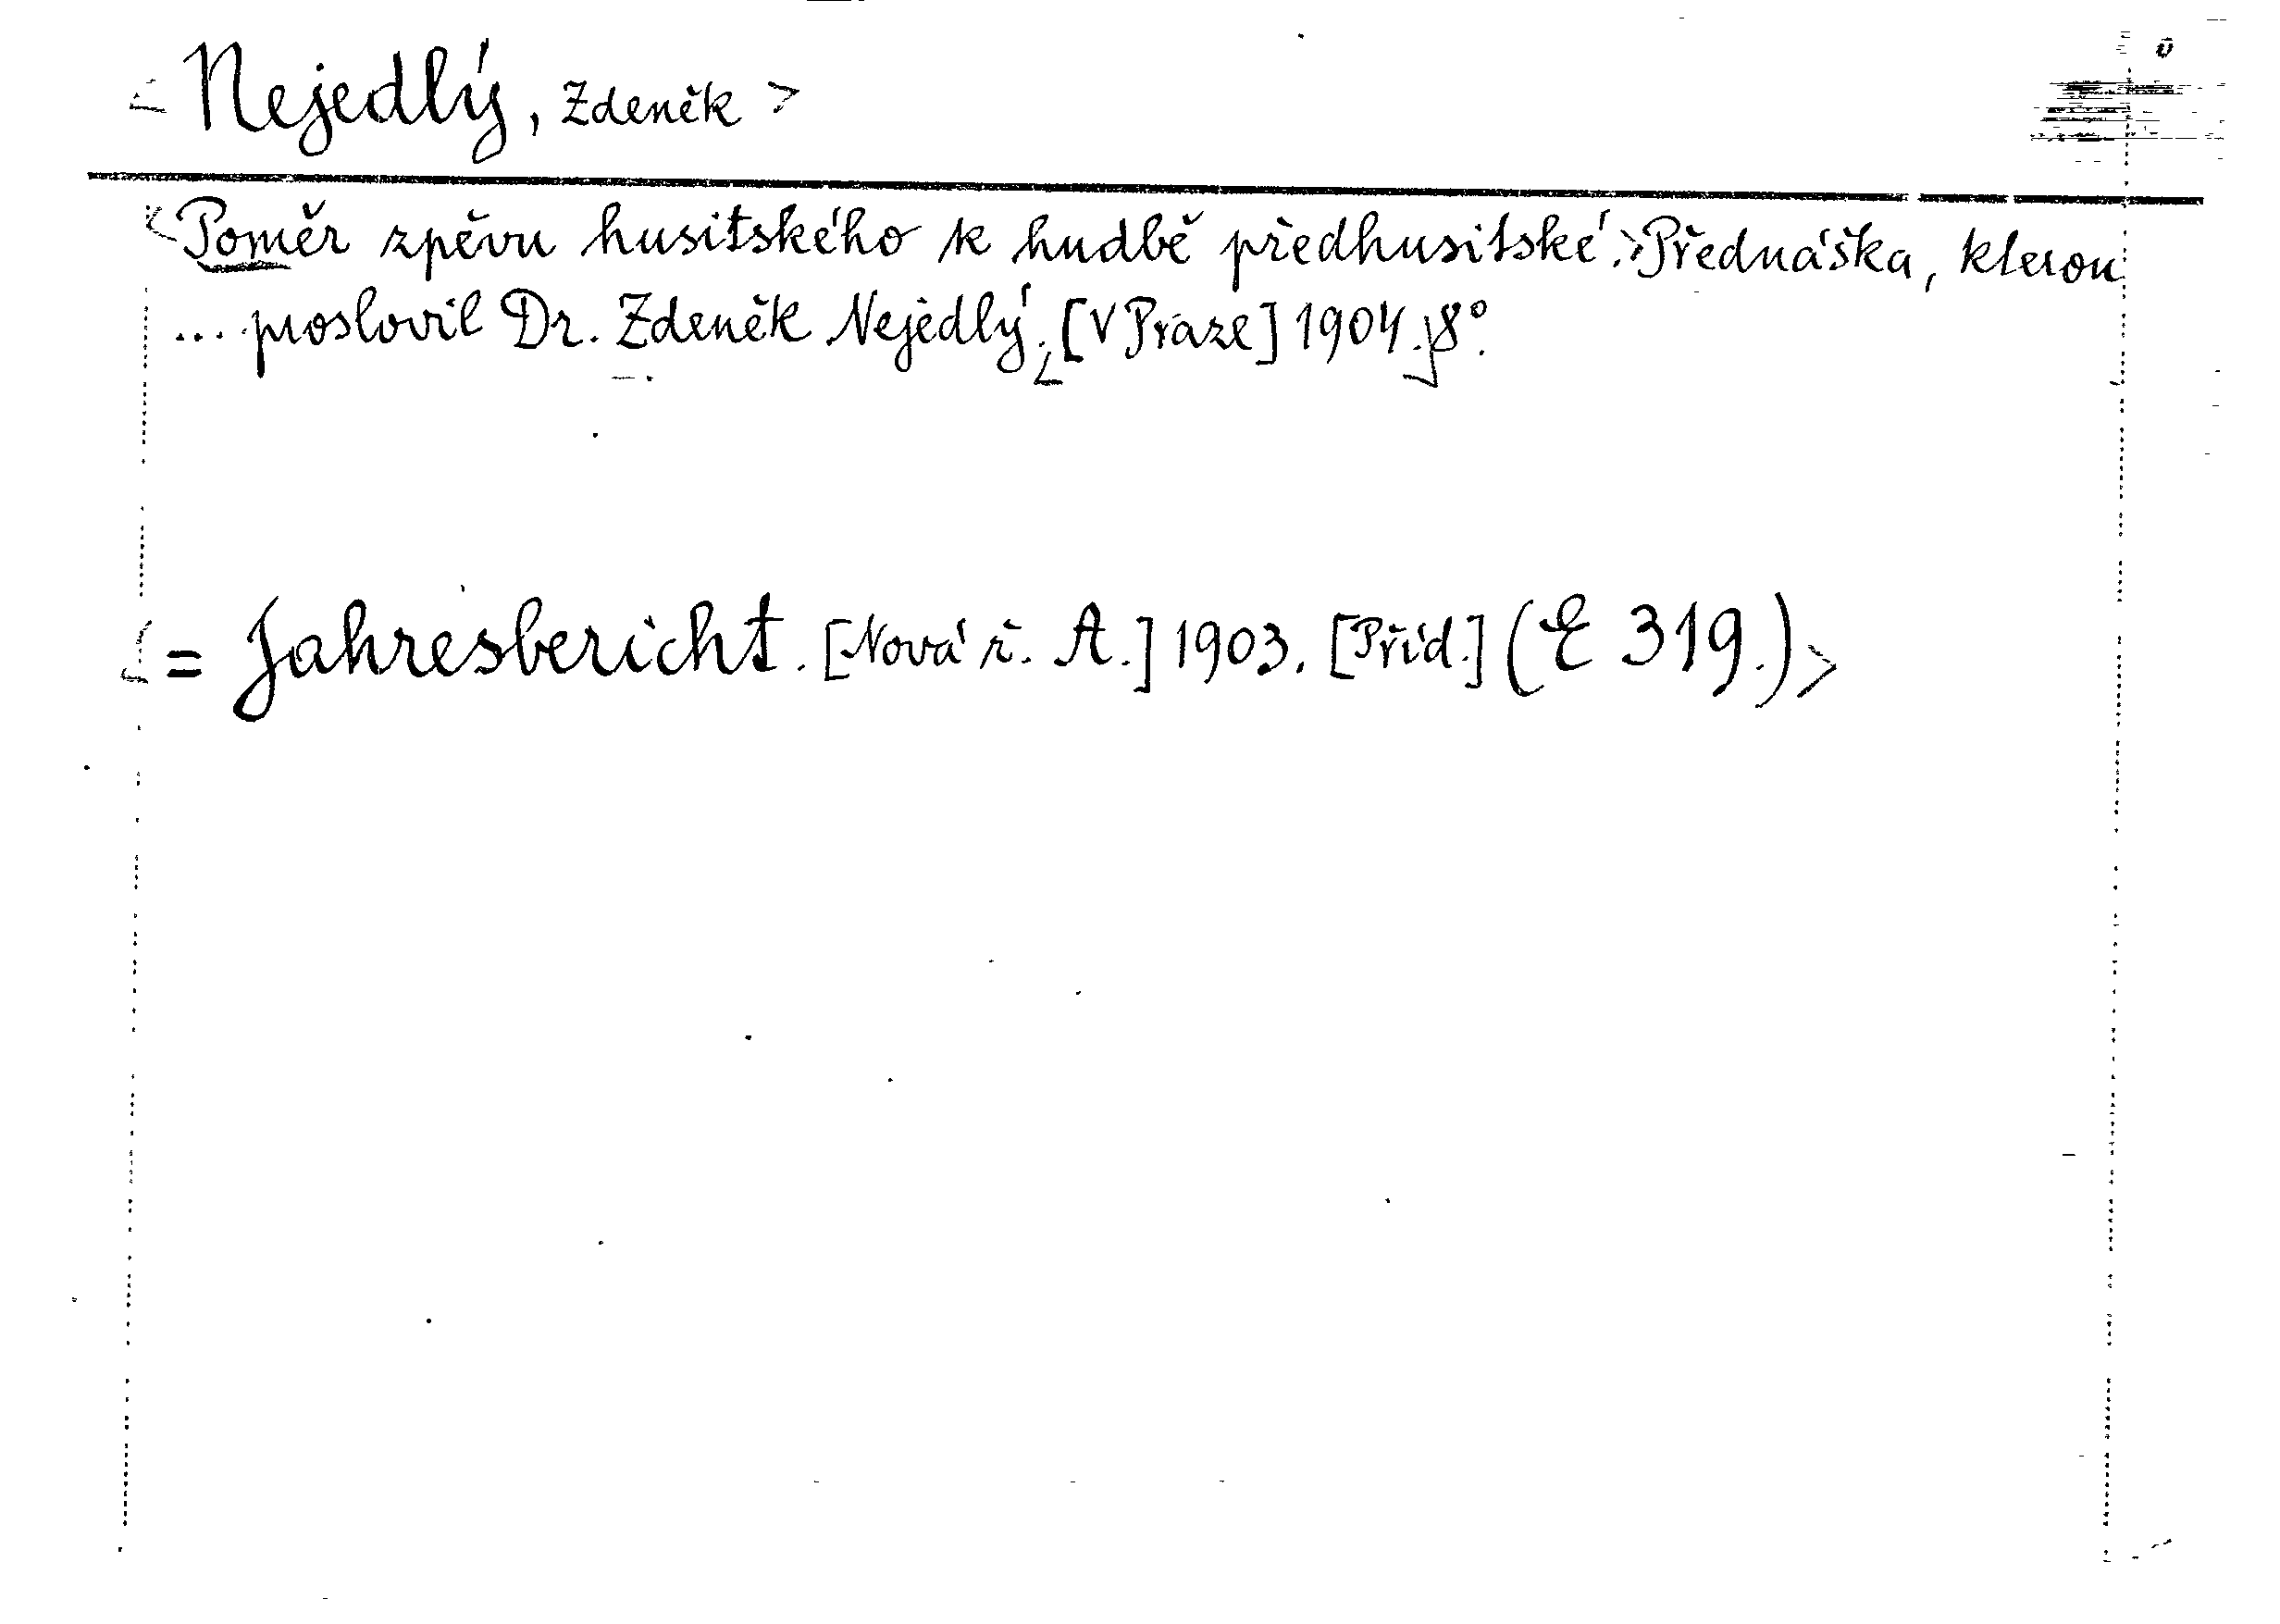 < Nejedlý, Zdeněk >
<Poměr zpěvu husitského k hudbě předhusitské.> Přednáška, kterou
... proslovil Dr. Zdeněk Nejedlý. <[V Praze] 1904.> 8°.
<= Jahresbericht. [Nová ř. A.] 1903. [Příd.] (E 319.)>